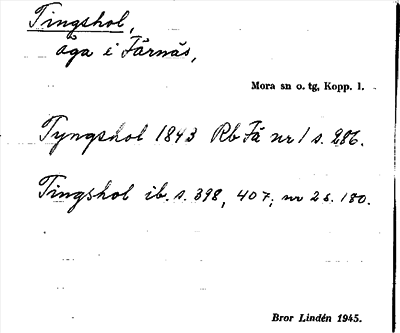 Tingshol,
äga i Färnäs,
Mora sn o. tg, Kopp. l.
Tyngshol 1843 Rb Fä nr 1 s. 286.
Tingshol ib. s. 398, 407; nr 2 s. 180.
Bror Lindén 1945.